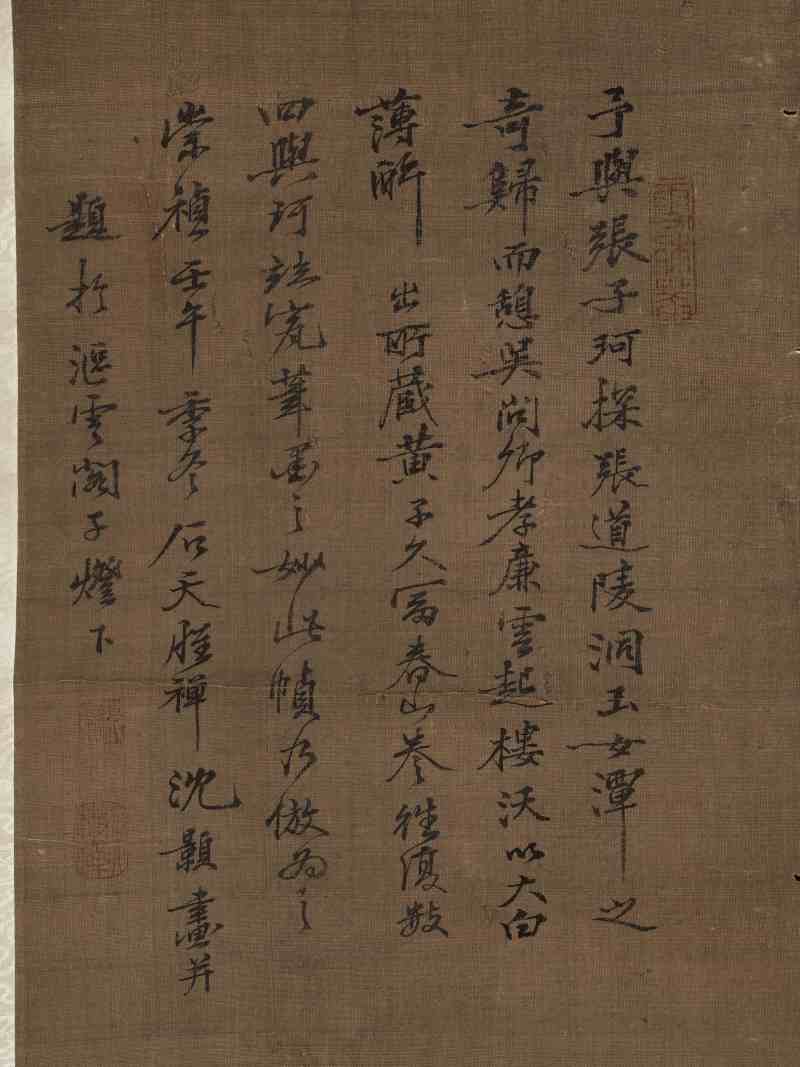 予與張子珂探張道陵洞玉女潭之
奇歸而憩吳問卿孝廉雲起樓沃以大白
薄酔出所藏黃子久富春山卷往復數
囬與珂究筆墨之妙此幀乃倣為之
崇禎壬午季冬石天禪沈顥畫并
題於漚雲閣子燈下